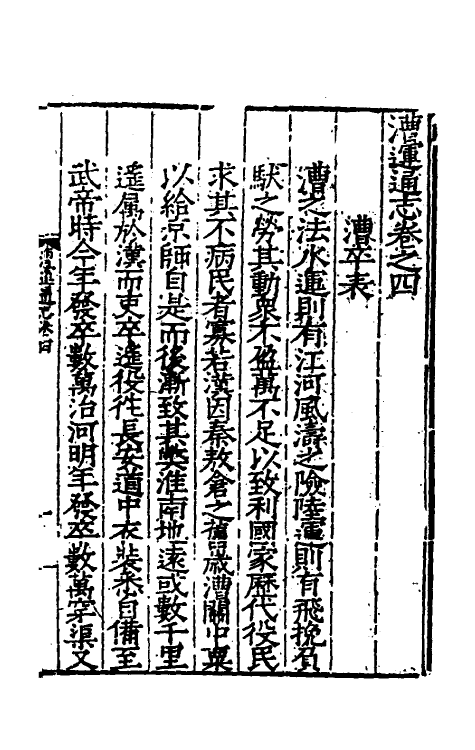 漕運通志卷之四
漕卒表
漕之法水運則有江河風濤之險陸運則有飛挽負
馱之勞其動衆不盈萬不足以致利國家歷代役民
求其不病民者寡若漢因秦敖倉之舊歲漕關中粟
以給京師自是而後漸致其弊淮南地遠或數千里
遥屬於漢而吏卒遥役徃長安道中衣裝悉自備至
武帝時今年發卒數萬治河明年發卒數萬穿渠又